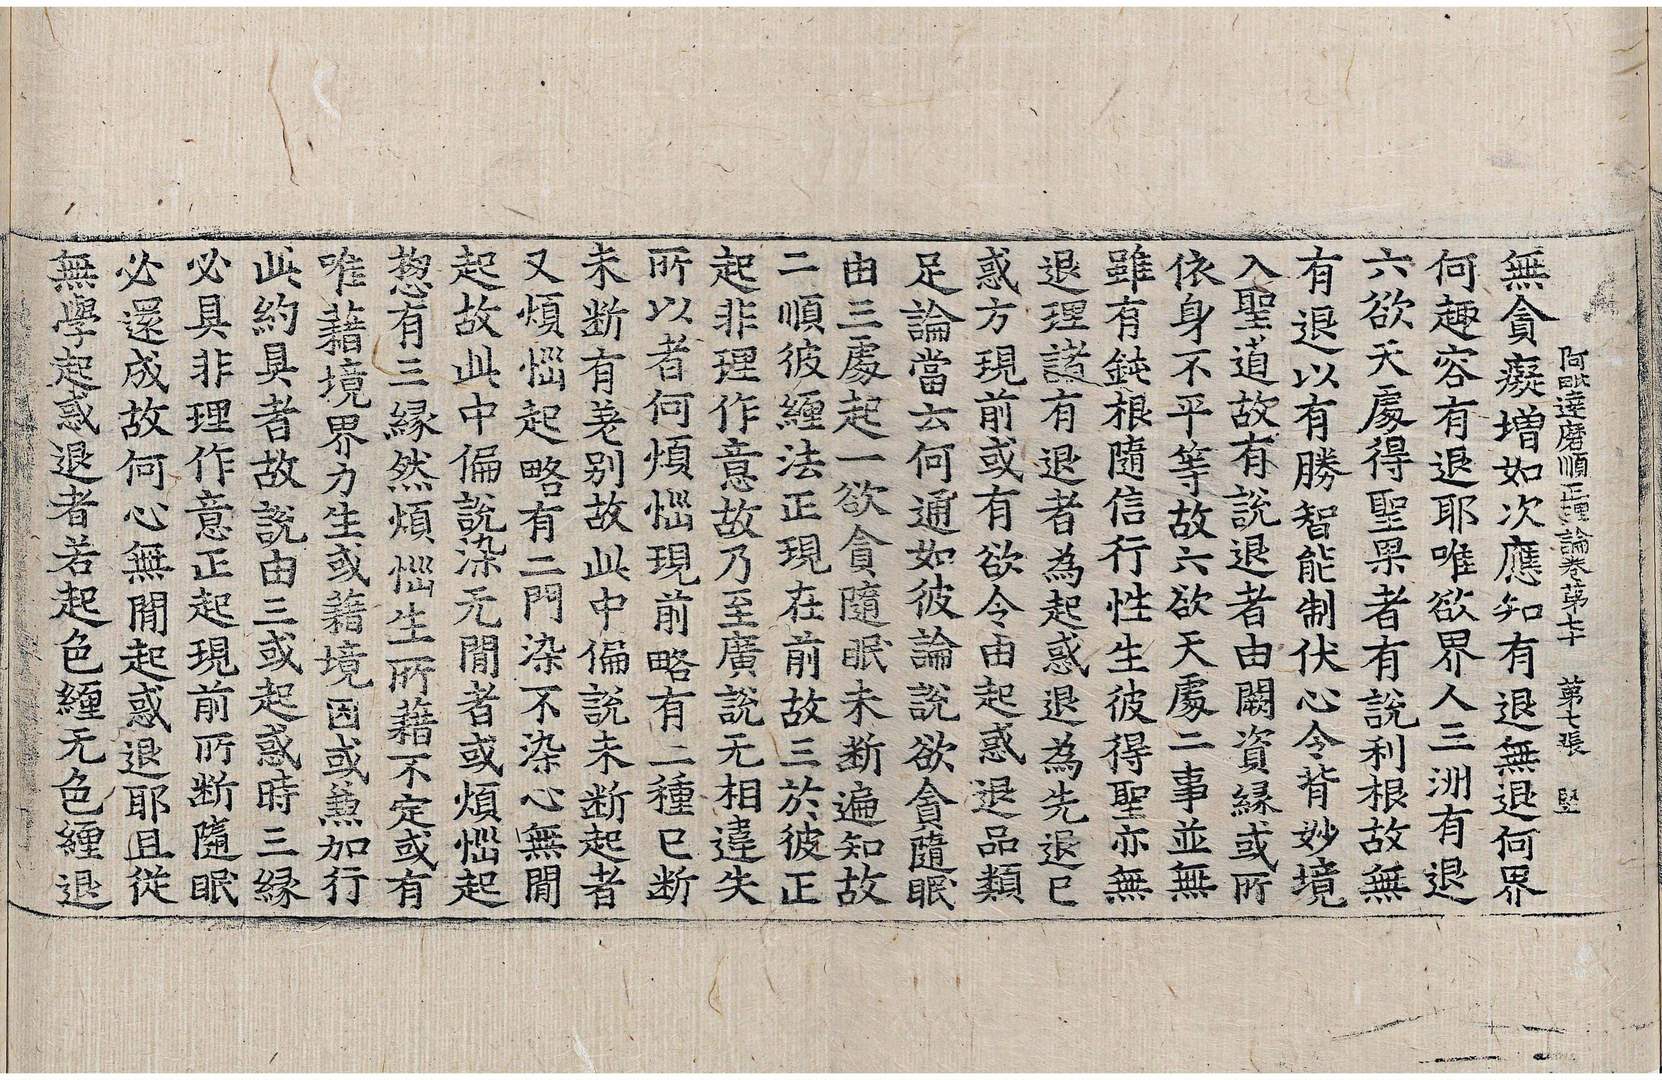 阿毗達磨順正理論卷第七十　第七張　堅
無貪癡增如次應知有退無退何界
何趣容有退耶唯欲界人三洲有退
六欲天處得聖果者有說利根故無
有退以有勝智能制伏心令背妙境
入聖道故有說退者由闕資緣或所
依身不平等故六欲天處二事並無
雖有鈍根隨信行性生彼得聖亦無
退理諸有退者為起惑退為先退已
惑方現前或有欲令由起惑退品類
足論當云何通如彼論說欲貪隨眠
由三處起一欲貪隨眠未断遍知故
二順彼纏法正現在前故三於彼正
起非理作意故乃至廣說无相違失
所以者何煩惱現前略有二種已断
未断有差别故此中偏說未断起者
又煩惱起略有二門染不染心無間
起故此中偏說染无間者或煩惱起
惣有三緣然煩惱生所藉不定或有
唯藉境界力生或藉境因或兼加行
此約具者故說由三或起惑時三緣
必具非理作意正起現前所断隨眠
必還成故何心無間起惑退耶且從
無學起惑退者若起色纏无色纏退